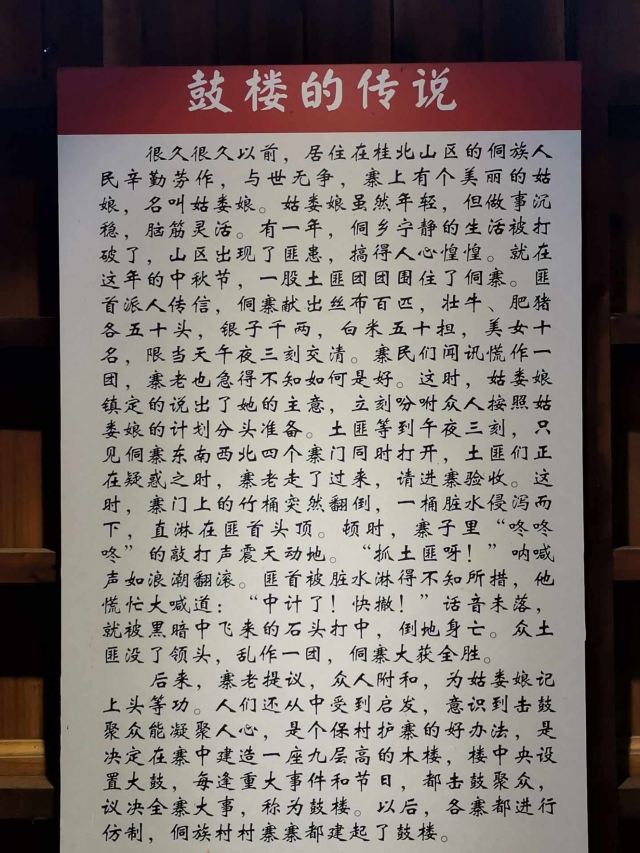 鼓楼的传说
很久很久以前，居住在桂北山区的侗族人
民辛勤劳作，与世无争，寨上有个美丽的姑
娘，名叫姑娄娘。姑娄娘虽然年轻，但做事沉
稳，脑筋灵活。有一年，侗乡宁静的生活被打
破了，山区出现了匪患，搞得人心惶惶。就在
这年的中秋节，一股土匪团团围住了侗寨。匪
首派人传信，侗寨献出丝布百匹，壮牛、肥猪
各五十头，银子千两，白米五十担，美女十
名，限当天午夜三刻交清。寨民们闻讯慌作一
团，寨老也急得不知如何是好。这时，姑娄娘
镇定的说出了她的主意，立刻吩咐众人按照姑
娄娘的计划分头准备。土匪等到午夜三刻，只
见侗寨东南西北四个寨门同时打开，土匪们正
在疑惑之时，寨老走了过来，请进寨验收。这
时，寨门上的竹桶突然翻倒，一桶脏水侵泻而
下，直淋在匪首头顶。顿时，寨子里“咚咚
咚”的敲打声震天动地。“抓土匪呀！”呐喊
声如浪潮翻滚。匪首被脏水淋得不知所措，他
慌忙大喊道：“中计了！快撤！”话音未落，
就被黑暗中飞来的石头打中，倒地身亡。众土
匪没了领头，乱作一团，侗寨大获全胜。
后来，寨老提议，众人附和，为姑娄娘记
上头等功。人们还从中受到启发，意识到击鼓
聚众能凝聚人心，是个保村护寨的好办法，是
决定在寨中建造一座九层高的木楼，楼中央设
置大鼓，每逢重大事件和节日，都击鼓聚众，
议决全寨大事，称为鼓楼。以后，各寨都进行
仿制，侗族村村寨寨都建起了鼓楼。